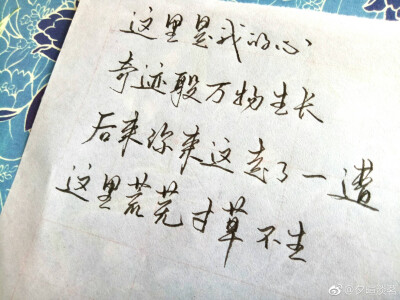 这里是我的心
奇迹般万物生长
后来你来这走了一遭
这里荒芜寸草不生